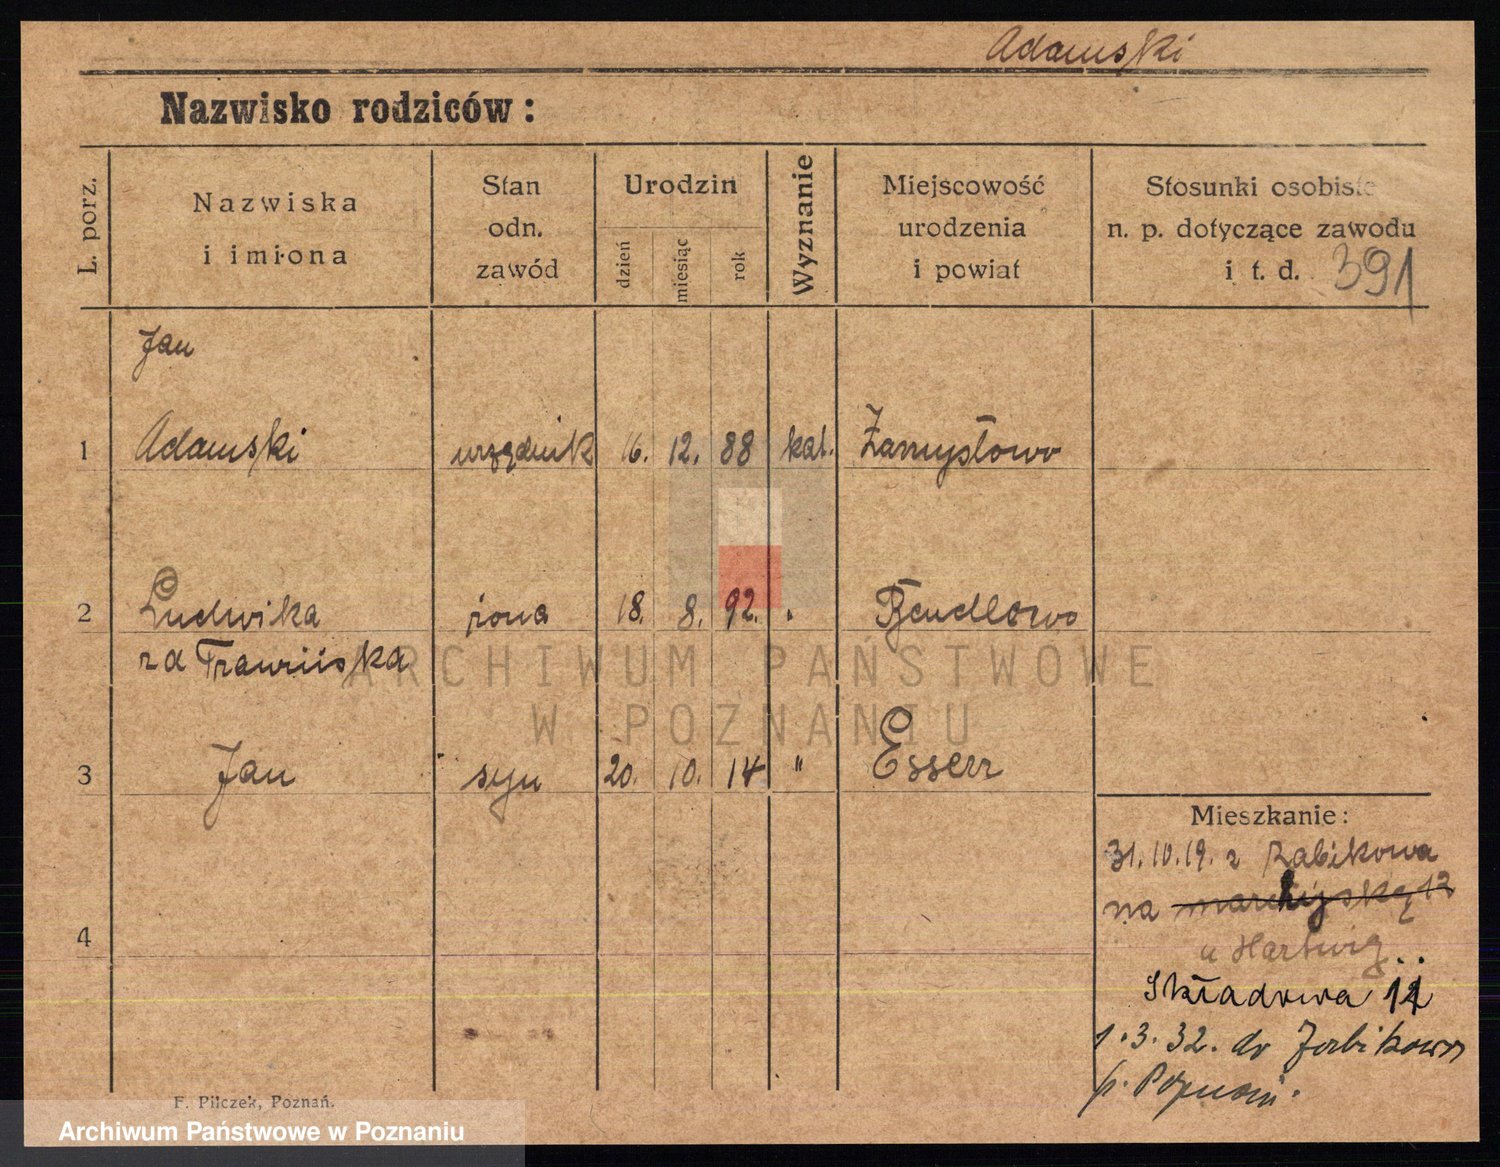 Adamski
Nazwisko rodziców:
L. porz.
Nazwiska
i imiona
Stan
odn.
zawód
Urodzin
dzień
miesiąc
rok
Wyznanie
Miejscowość
urodzenia
i powiat
Stosunki osobiste
n. p. dotyczące zawodu
i t. d.
391
Jan
1 Adamski urzędnik 16. 12. 88 kat. Zamysłowo
2 Ludwika żona 18. 8. 92. " Bendlewo
zd Trawińska
3 Jan syn 20. 10. 14 " Essen
4
Mieszkanie:
31.10.19. z Żabikowa
na 12
u Hartwig
Składowa 11
1.3.32. do Żabikowa
p. Poznań.
F. Pilczek, Poznań.
ARCHIWUM PAŃSTWOWE
W POZNANIU
Archiwum Państwowe w Poznaniu